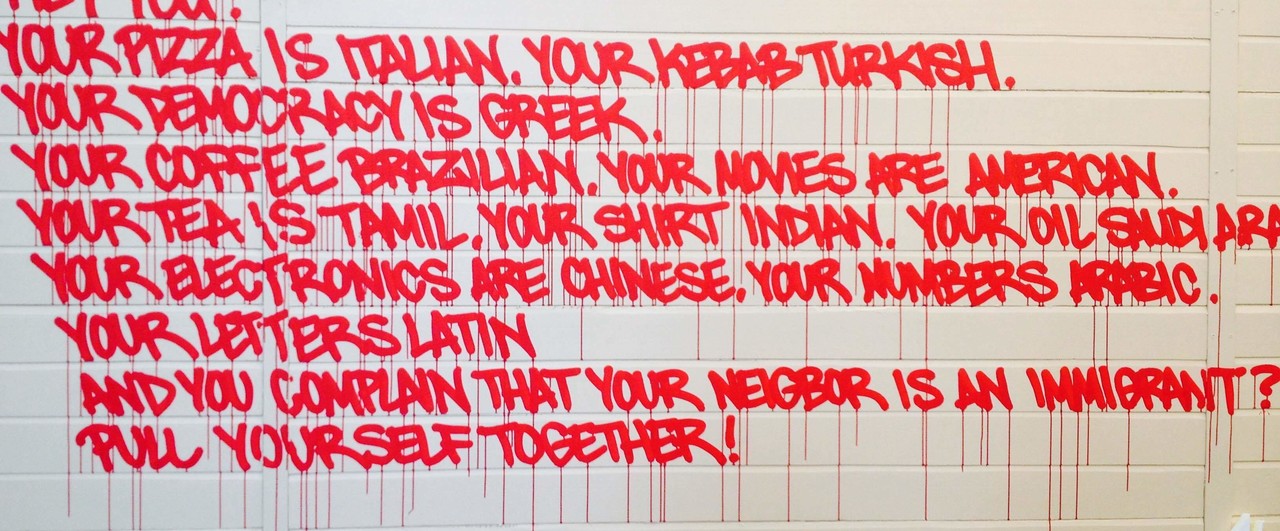 HEY YOU!
YOUR PIZZA IS ITALIAN. YOUR KEBAB TURKISH.
YOUR DEMOCRACY IS GREEK.
YOUR COFFEE BRAZILIAN. YOUR MOVIES ARE AMERICAN.
YOUR TEA IS TAMIL. YOUR SHIRT INDIAN. YOUR OIL SAUDI ARA
YOUR ELECTRONICS ARE CHINESE. YOUR NUMBERS ARABIC.
YOUR LETTERS LATIN
AND YOU COMPLAIN THAT YOUR NEIGBOR IS AN IMMIGRANT?
PULL YOURSELF TOGETHER!